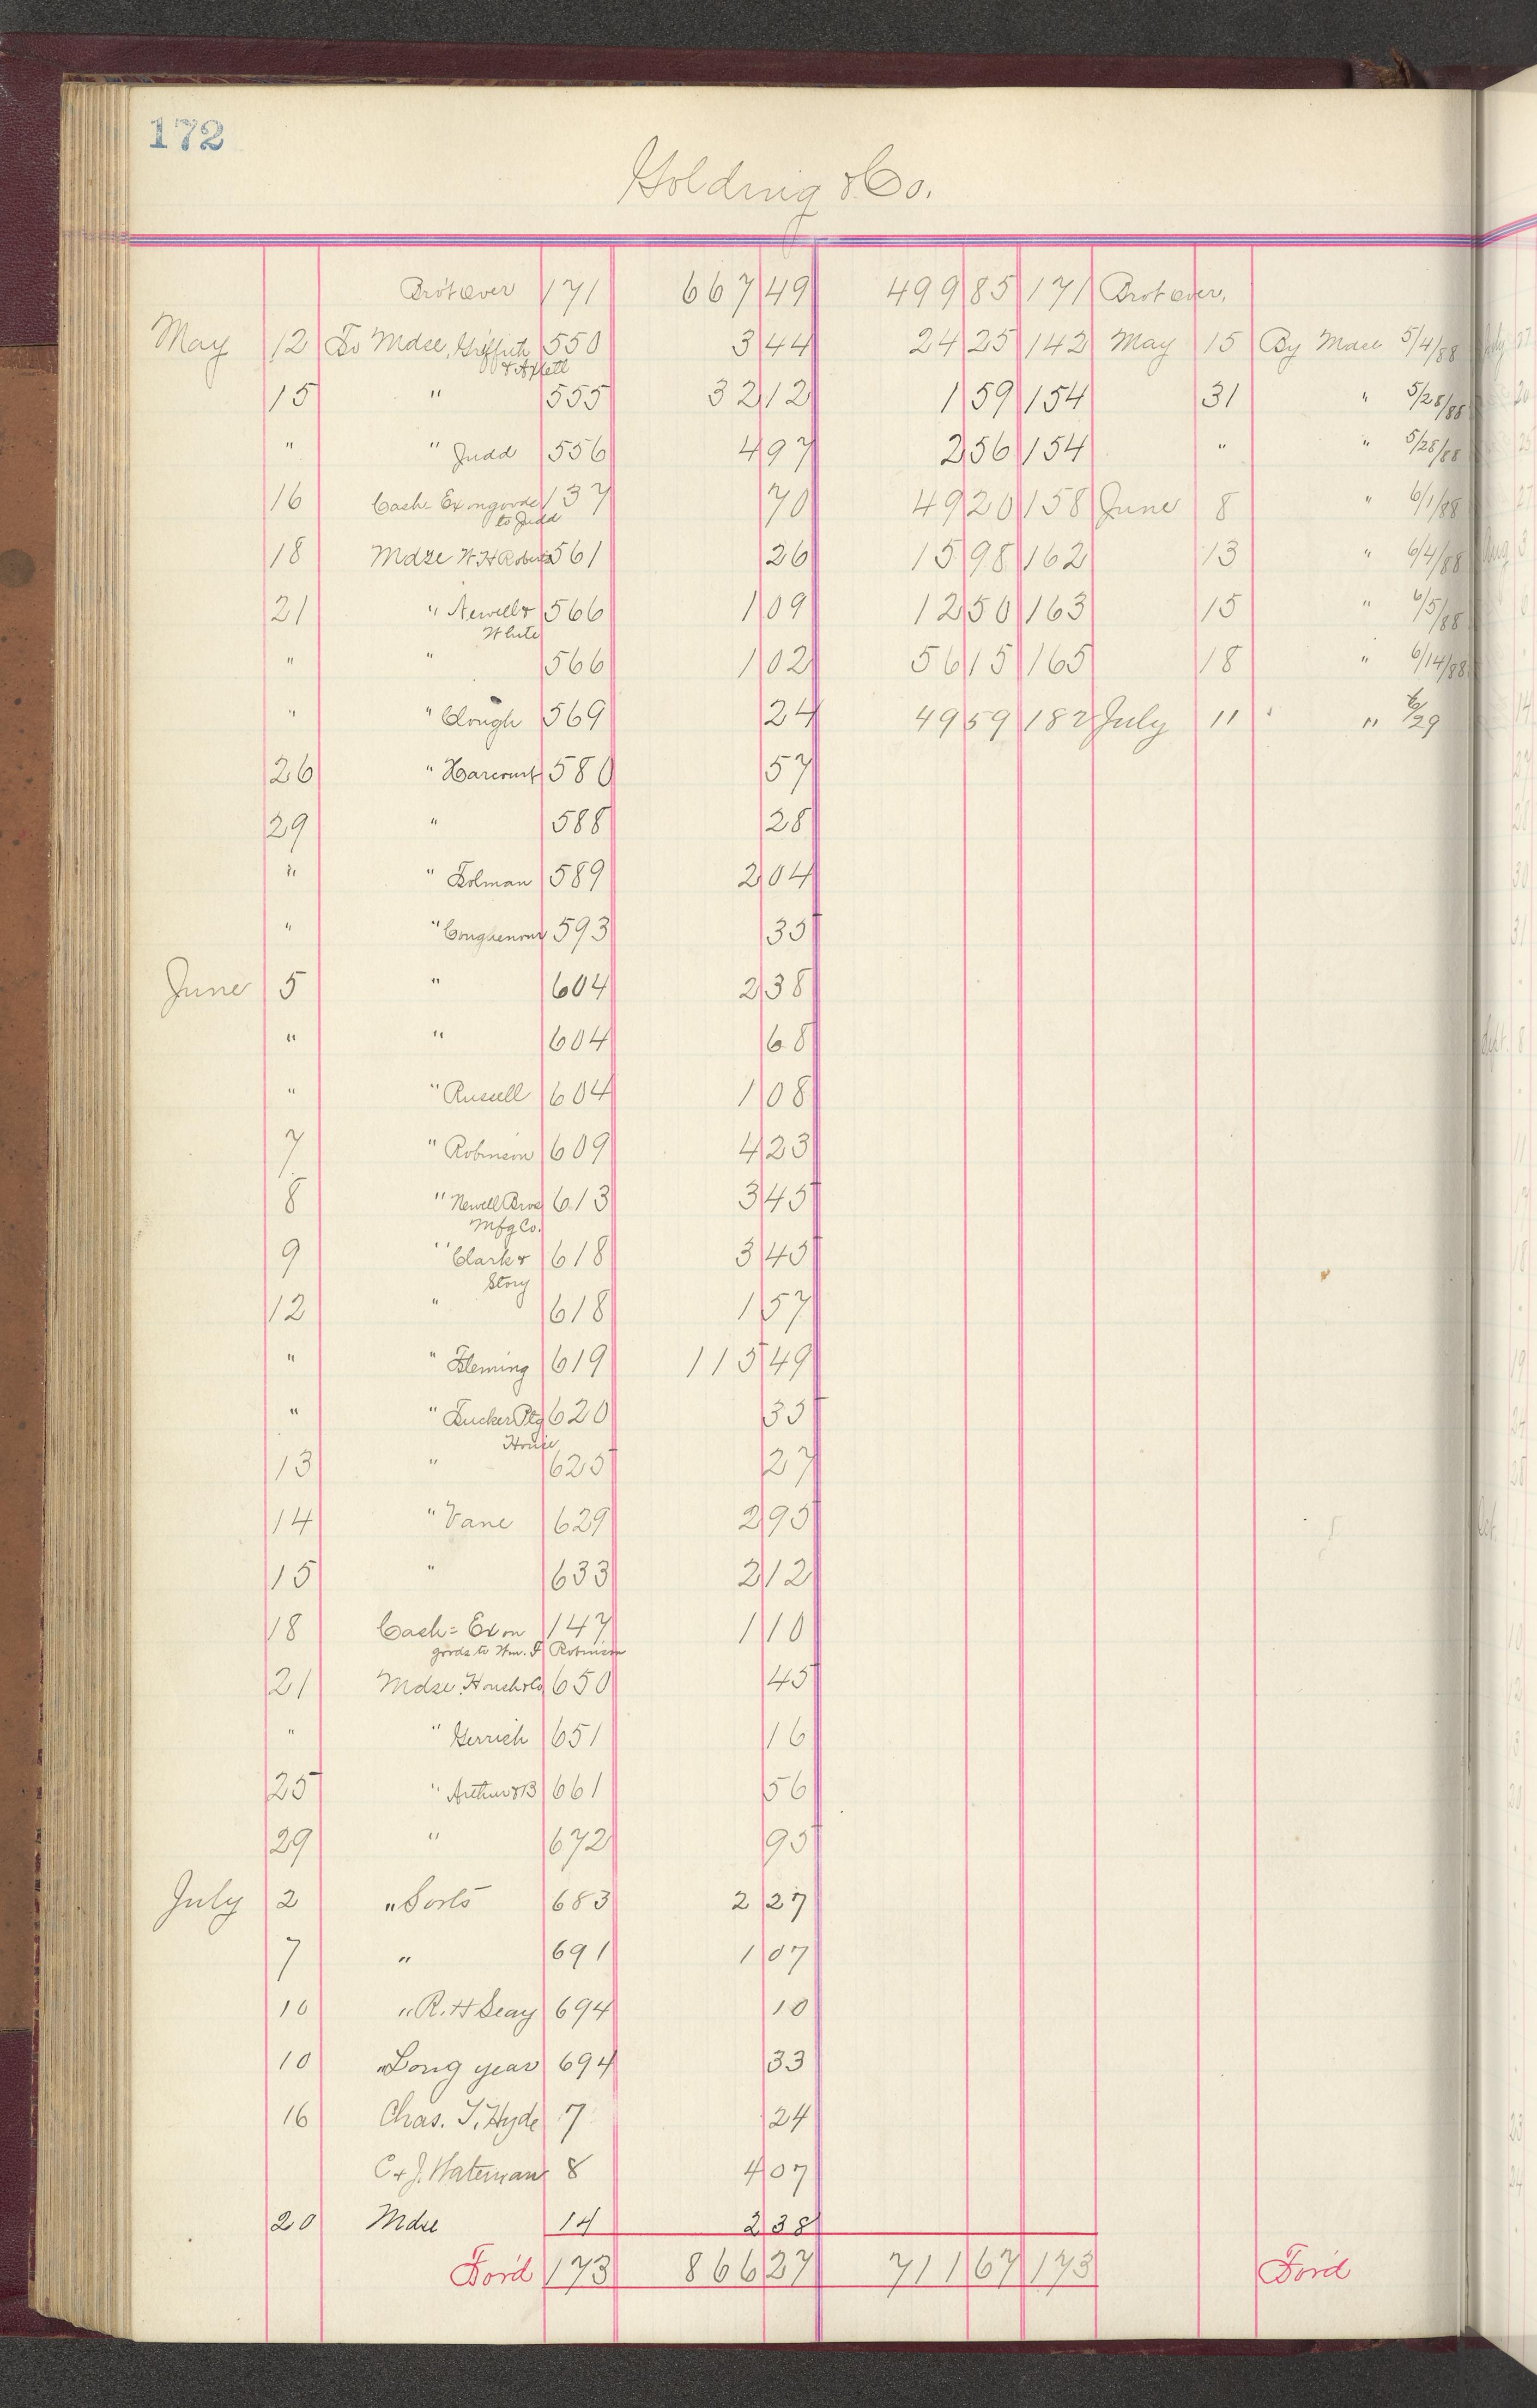 172
Golding & Co.
Bro't over 171 667 49 499 85 171 Brot over.
May 12 To Mdse, Griffith 550 3 44 24 25 142 May 15 By Mdse 5/4/88
& Axtell
15 " 555 32 12 1 59 154 31 " 5/28/88
" " Judd 556 4 97 2 56 154 " " 5/28/88
16 Cash Ex on goods 137 70 49 20 158 June 8 " 6/1/88
to Judd
18 Mdse W.H Roberts 561 26 15 98 162 13 " 6/4/88
21 " Newell & 566 1 09 12 50 163 15 " 6/5/88
White
" " 566 1 02 56 15 165 18 " 6/14/88
" " Clough 569 24 49 59 182 July 11 " 6/29
26 " Harcourt 580 57
29 " 588 28
" " Tolman 589 2 04
" " Coughenour 593 35
June 5 " 604 2 38
" " 604 68
" " Russell 604 1 08
7 " Robinson 609 4 23
8 " Newell Bros 613 3 45
Mfg Co.
9 " Clark & 618 3 45
Story
12 " 618 1 57
" " Fleming 619 115 49
" " Tucker Ptg 620 35
House
13 " 625 27
14 " Vane 629 2 95
15 " 633 2 12
18 Cash = Ex on 147 1 10
goods to Wm. F Robinson
21 Mdse. Household 650 45
" " Gerrish 651 16
25 " Arthur & B 661 56
29 " 672 95
July 2 " Sorts 683 2 27
7 " 691 1 07
10 " R. H Seay 694 10
10 " Longyear 694 33
16 Chas. T. Hyde 7 24
C & J. Waterman 8 4 07
20 Mdse 14 2 38
For'd 173 866 27 711 67 173 For'd